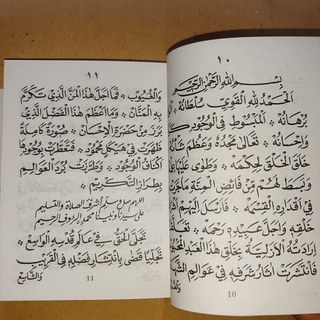 ١٠
بِسْمِ اللهِ الرَّحْمٰنِ الرَّحِيْمِ
الْحَمْدُ لِلّٰهِ الْقَوِيِّ سُلْطَانُهُ
بُرْهَانُهُ * الْمَبْسُوطِ فِي الْوُجُودِ كَ
وَإِحْسَانُهُ * تَعَالٰى مَجْدُهُ وَعَظُمَ شَ
خَلَقَ الْخَلْقَ لِحِكْمَةٍ * وَطَوٰى عَلَيْهَا
وَبَسَطَ لَهُمْ مِنْ فَائِضِ الْمِنَّةِ مَا
فِي أَقْدَارِهِ الْقِسْمَةُ * فَأَرْسَلَ إِلَيْهِمْ
خَلْقِهِ وَأَجَلَّ عَبِيْدِهِ رَحْمَةً * تَعَلَّقَتْ
إِرَادَتُهُ الْأَزَلِيَّةُ بِخَلْقِ هٰذَا الْعَبْدِ
فَانْتَشَرَتْ آثَارُ شَرَفِهِ فِي عَوَالِمِ الشَّهَا
وَالْغُيُوبِ
10
١١
وَالْغُيُوبِ * فَمَا أَجَلَّ هٰذَا الْمَنَّ الَّذِي تَكَرَّمَ
بِهِ الْمَنَّانُ * وَمَا أَعْظَمَ هٰذَا الْفَضْلَ الَّذِي
بَرَزَ مِنْ حَضْرَةِ الْإِحْسَانِ * صُورَةً كَامِلَةً
ظَهَرَتْ فِي هَيْكَلٍ مَحْمُودٍ * فَتَعَطَّرَتْ بِوُجُودِهَا
أَكْنَافُ الْوُجُودِ * وَطَرَّزَتْ بُرْدَ الْعَوَالِمِ
بِطِرَازِ التَّكْرِيْمِ *
اللهم صل وسلم أشرف الصلاة والتسليم
على سيدنا ونبينا محمد الرءوف الرحيم
تَجَلَّى الْحَقُّ فِي عَالَمِ قُدْسِهِ الْوَاسِعِ *
تَجَلِّيًا قَضٰى بِانْتِشَارِ فَضْلِهِ فِي الْقَرِيْبِ
وَالشَّاسِعِ
11